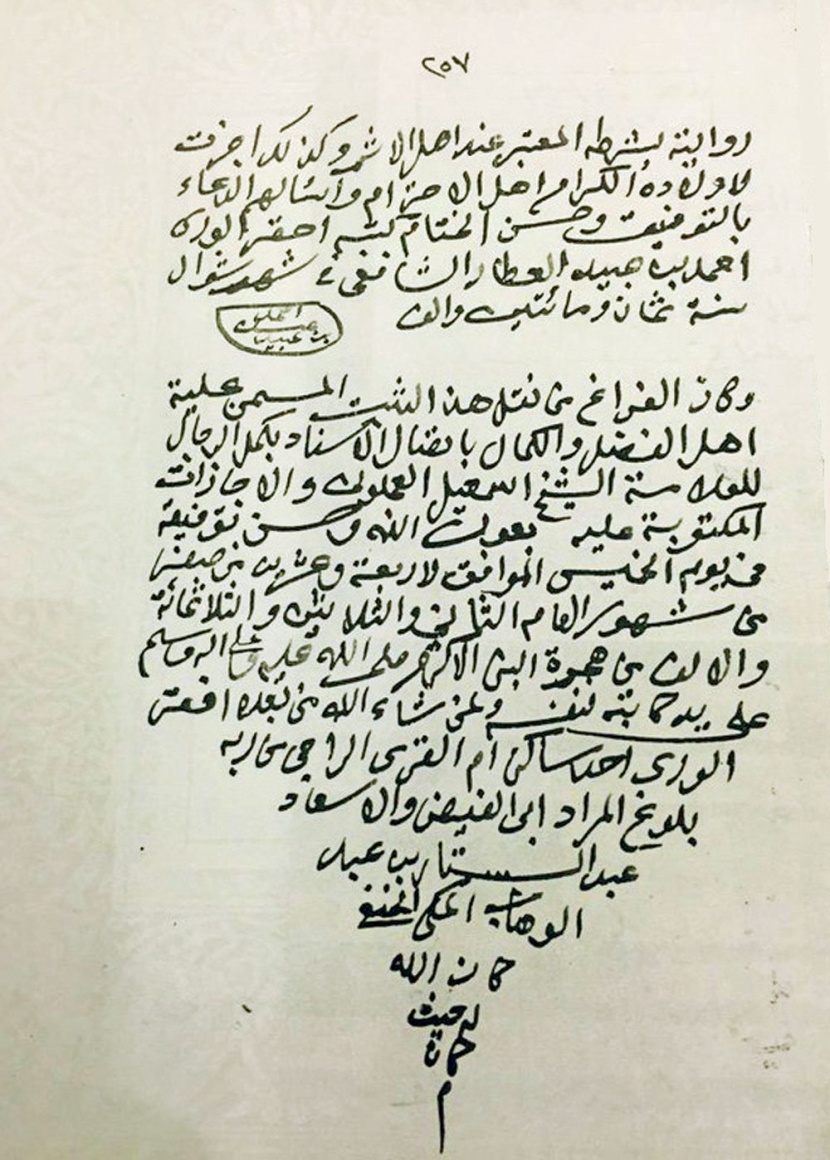 ٢٥٧
روايته بشرطه المعتبر عند اهل الاثر وكذلك اجزت
لاولاده الكرام اهل الاحترام واسئالهم الدعاء
بالتوفيق وحسن الختام كتبه احقر الورى
احمد بن عبيد العطار الشافعي في شهر شوال
سنة ثمان ومائتين والف
بن عبيد
وكان الفراغ من نقل هذا الثبت المسمى حلية
اهل الفضل والكمال باتصال الاسناد بكمل الرجال
للعلامة الشيخ اسمعيل العجلوني والاجازات
المكتوبة عليه بعون الله وحسن توفيقه
في يوم الخميس الموافق لاربعة وعشرين من صفر
من شهور العام الثاني والثلاثين والثلاثمائة
والالف من هجرة النبي الاكرم صلى الله عليه وعلى اله وسلم
على يد كاتبه لنفسه ولمن شاء الله من بعده افقر
الورى احد ساكني ام القرى الراجي من ربه
بلوغ المراد ابي الفيض والاسعاد
عبد الستار بن عبد
الوهاب المكي الحنفي
كان الله
له حيث
كان
م